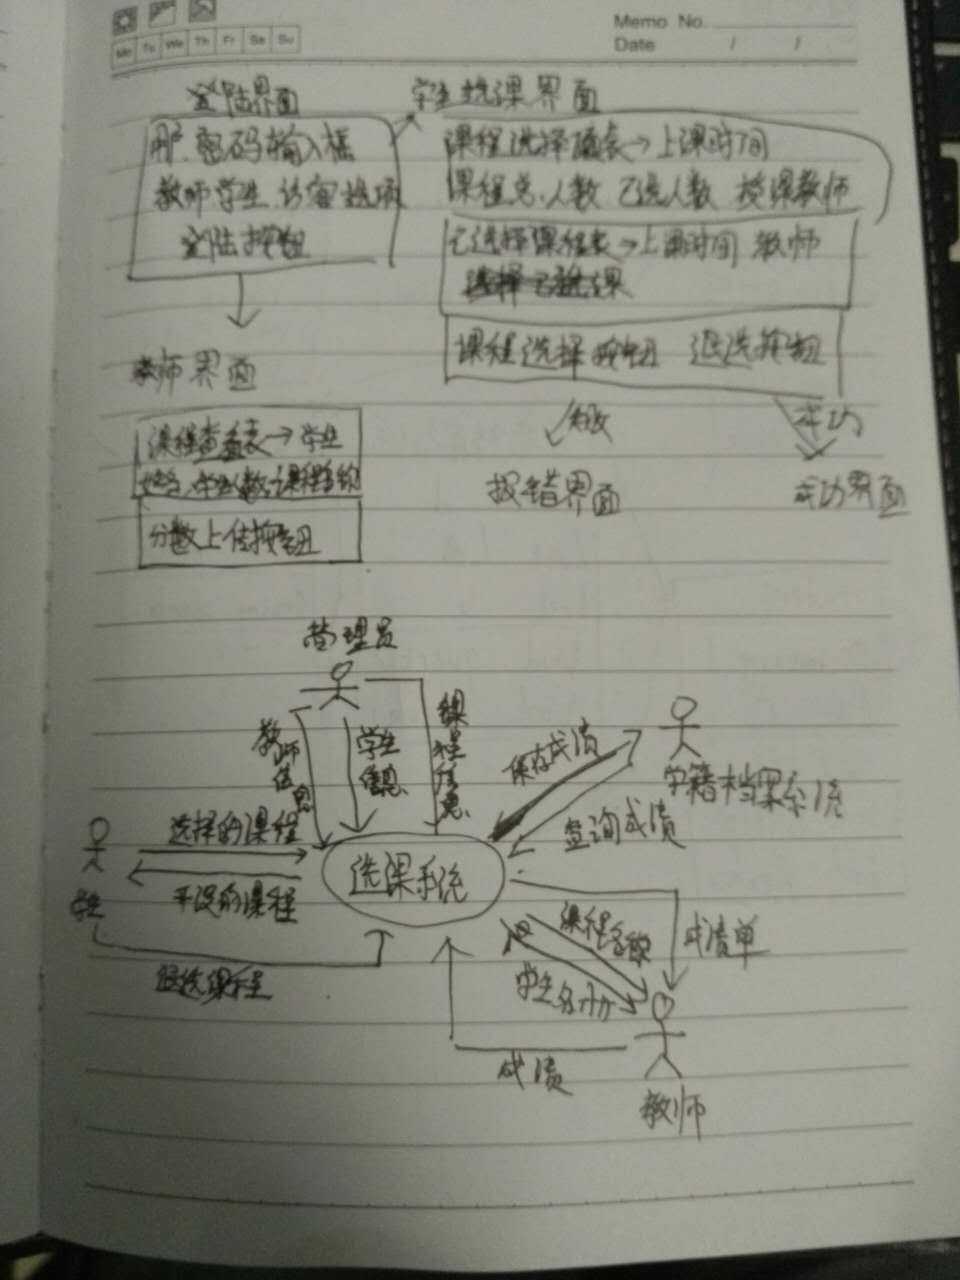 Memo No.
Date / /
Mo Tu We Th Fr Sa Su
登陆界面
学生选课界面
密码输入框
教师 学生 访客选项
登陆按钮
课程选择 表→上课时间
课程总人数 已选人数 授课教师
已选择课程表→上课时间 教师
课程选择按钮 退选按钮
失败
成功
教师界面
课程查看表→学生
姓名、学生人数、课程名称
分数上传按钮
报错界面
成功界面
管理员
教师信息
学生信息
课程信息
保存成绩
查询成绩
学籍档案系统
选择的课程
开设的课程
学生
退选课程
选课系统
课程名称
学生名册
成绩单
成绩
教师